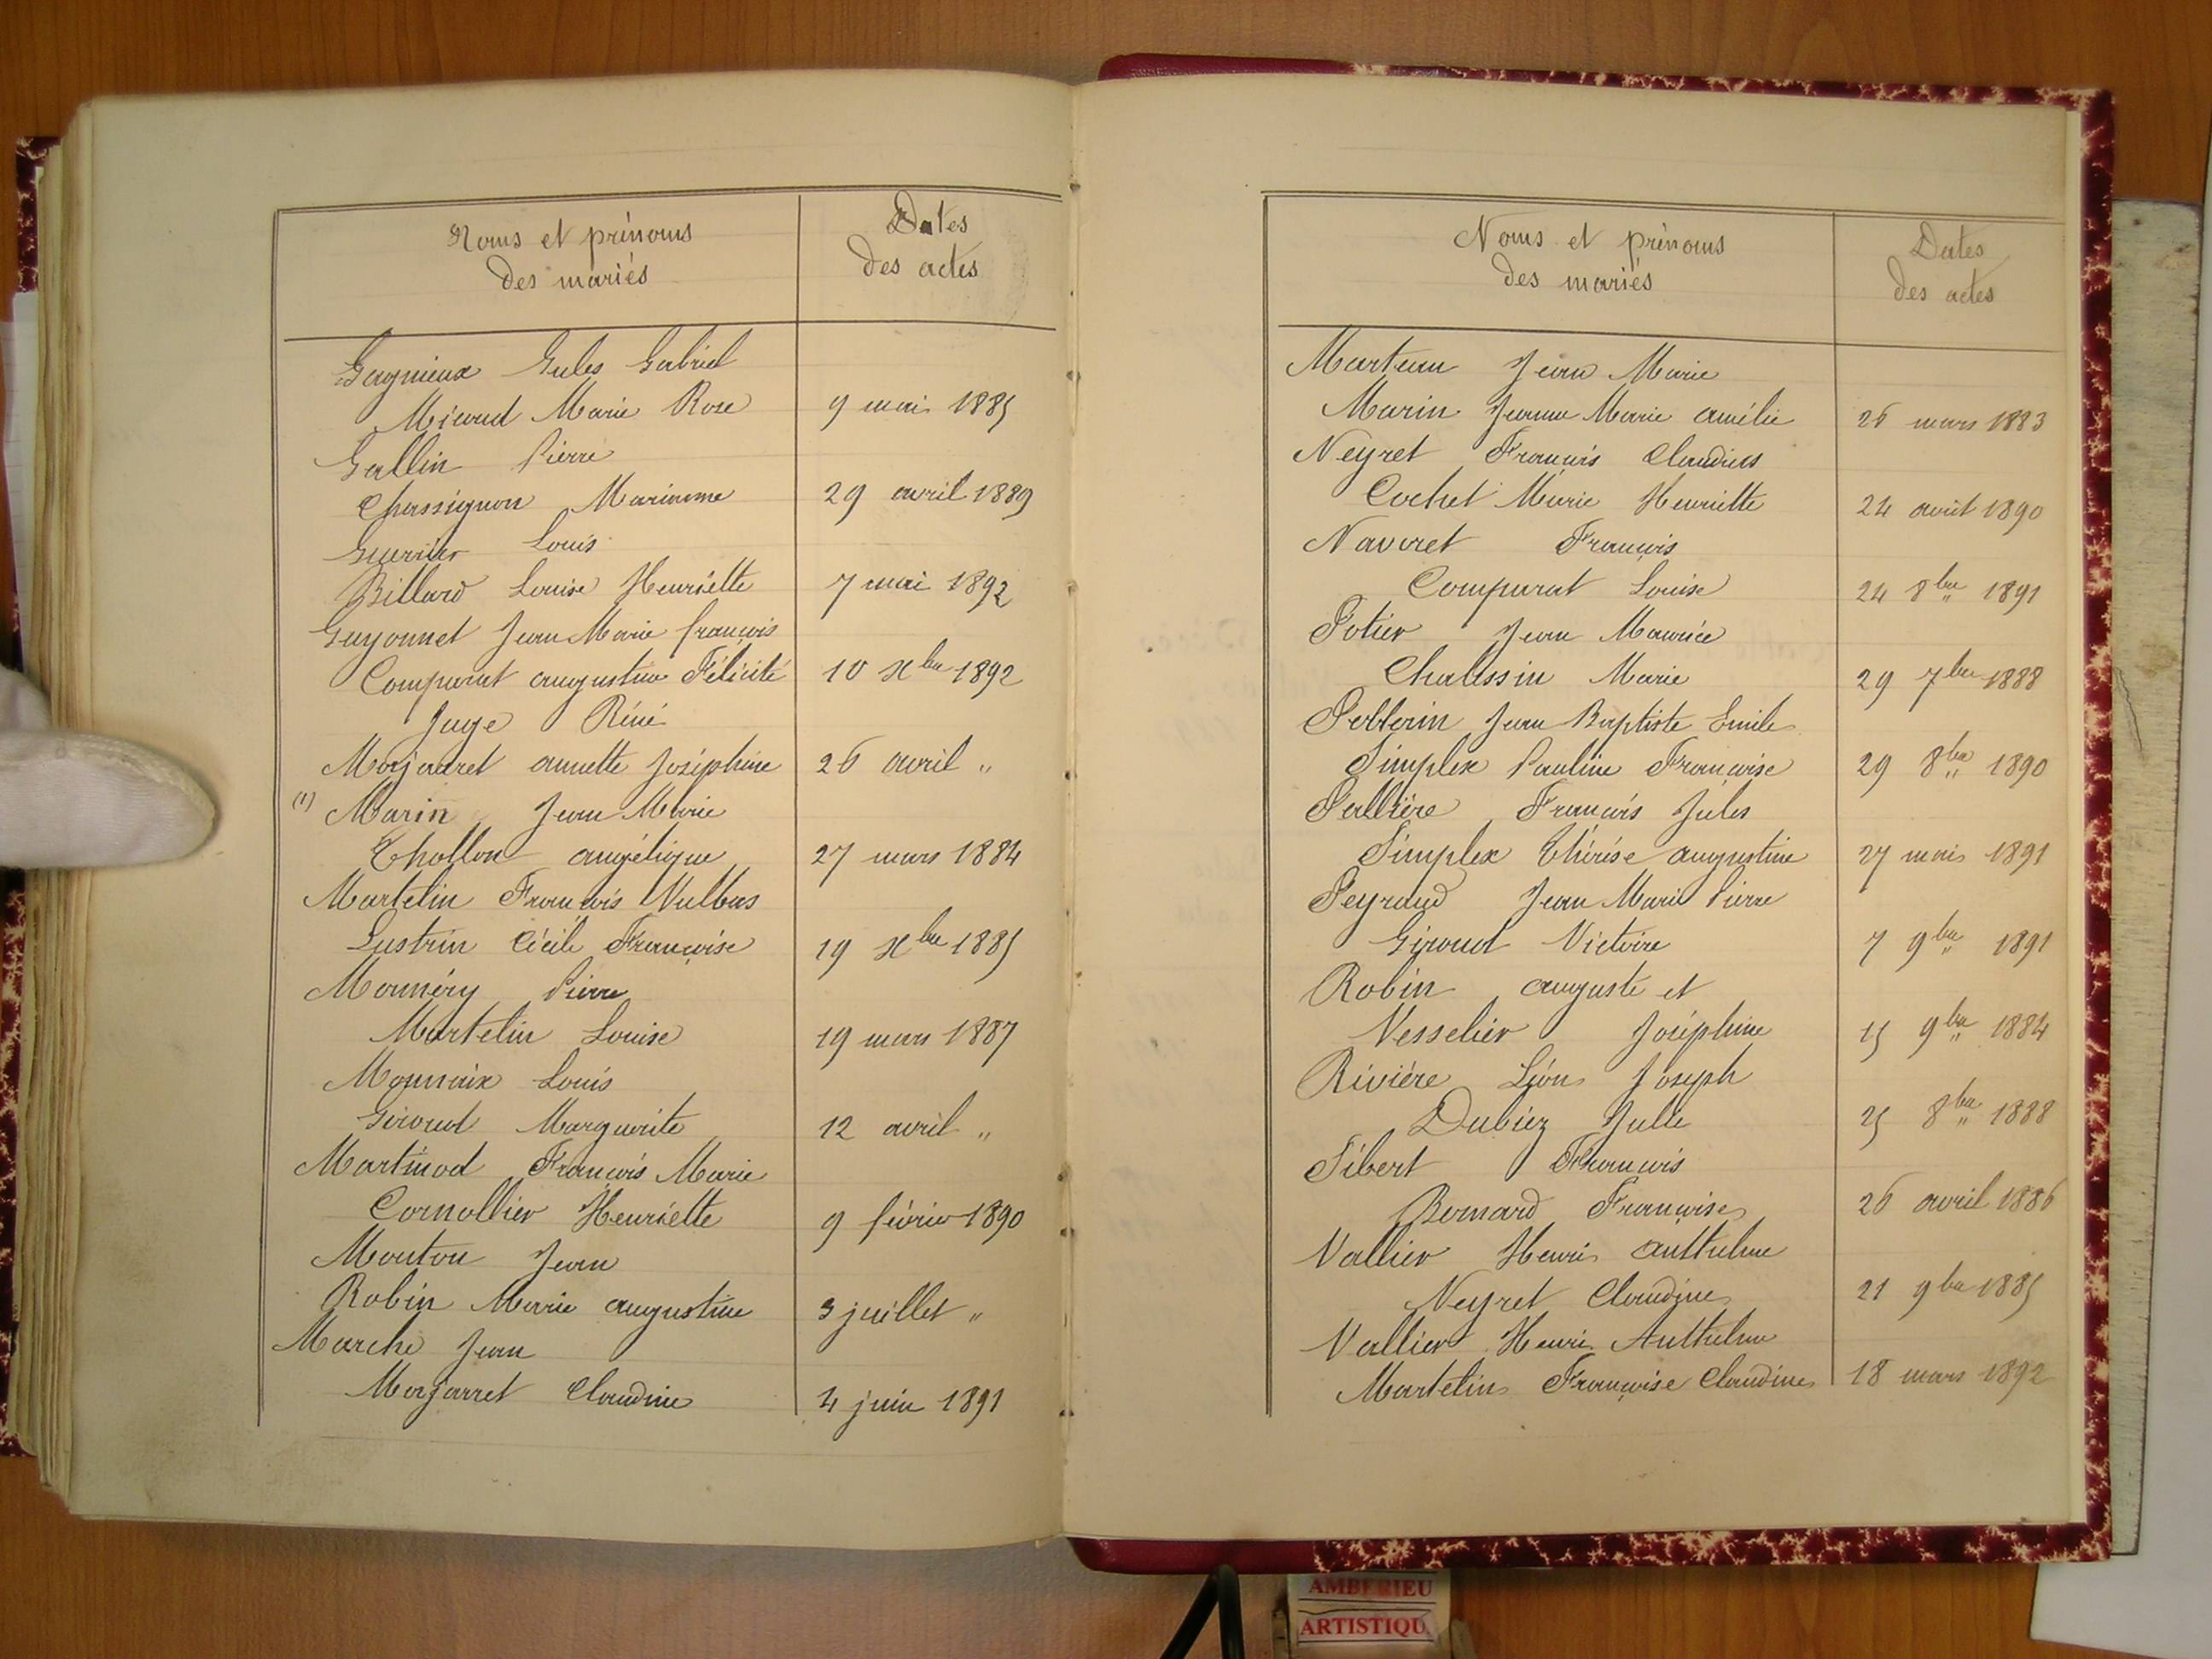 Noms et prénoms
des mariés
Dates
des actes
Gagnieux Jules Gabriel
Micoud Marie Rose 9 mai 1885
Gallin Pierre
Chassignon Marianne 29 avril 1889
Guerrier Louis
Billard Louise Henriette 7 mai 1892
Guyonnet Jean Marie françois
Comparat augustine Félicité 10 Xbre 1892
Juge Réné
Morjarret annette Joséphine 26 avril "
(1) Marin Jean Marie
Thollon angélique 27 mars 1884
Martelin François Vulbas
Lustrin Cécile Françoise 19 Xbre 1885
Monnéry Pierre
Martelin Louise 19 mars 1887
Monnaix Louis
Giroud Marguerite 12 avril "
Martinod François Marie
Cornollier Henriette 9 février 1890
Mouton Jean
Robin Marie augustine 3 juillet "
Marche Jean
Morjarret Claudine 4 juin 1891
Noms et prénoms
des mariés
Dates
des actes
Marteau Jean Marie
Marin Jeanne Marie amélie 26 mars 1883
Neyret François Claudius
Cochet Marie Henriette 24 août 1890
Navoret François
Comparat Louise 24 8bre 1891
Potier Jean Maurice
Chalissin Marie 29 7bre 1888
Pellerin Jean Baptiste Emile
Simplex Pauline Françoise 29 8bre 1890
Pallière François Jules
Simplex Thérèse augustine 27 mai 1891
Peyraud Jean Marie Pierre
Giroud Victoire 7 9bre 1891
Robin auguste et
Vesselier Joséphine 15 9bre 1884
Rivière Léon Joseph
Dubiez Julie 25 8bre 1888
Sibert François
Bernard Françoise 26 avril 1886
Vallier Henri anthelme
Neyret Claudine 21 9bre 1885
Vallier Henri Anthelme
Martelin Françoise Claudine 18 mars 1892
AMBERIEU
ARTISTIQU